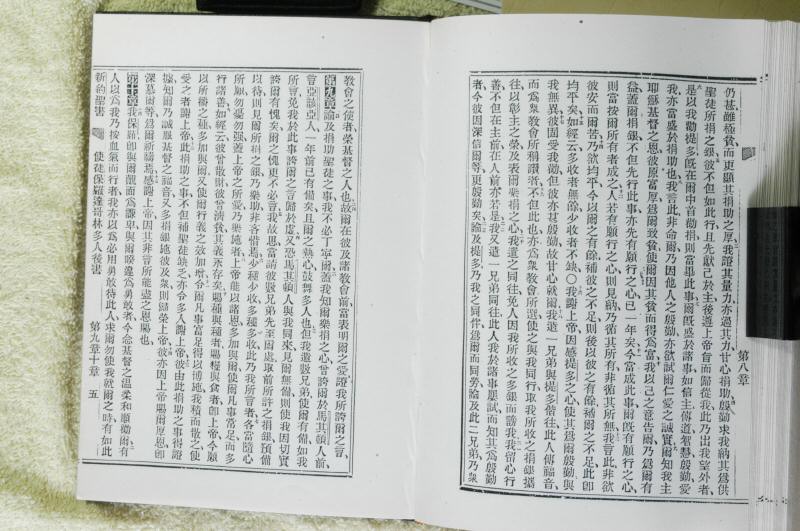 第八章
仍甚雖極貧而更顯其捐助之厚我證其量力亦過其力甘心捐助殷勤求我納其爲供
聖徒所捐之銀彼不但如此行且先獻己於主後遵上帝旨而歸從我此乃出我望外者
是以我勸提多既在爾中首勸捐則當畢此事爾既盛於諸事如信主傳道智慧殷勤愛
我亦當盛於捐助也我言此非命爾乃因他人之殷勤亦欲試爾仁愛之誠實爾知我主
耶穌基督之恩彼原富厚爲爾致貧使爾因其貧而得爲富我以己之意告爾乃爲爾有
益蓋爾捐銀不但先行此事亦先有願行之心已一年矣今當成此事爾既有願行之心
則當按爾所有者成之人若有願行之心則見納乃循其所有非循其所無我言此非欲
彼安而爾苦乃欲均平今以爾之有餘補彼之不足則後以彼之有餘補爾之不足此卽
均平矣如經云多收者無餘少收者不缺○我謝上帝因感提多之心使其爲爾殷勤與
我無異彼固受我勸但彼亦甚殷勤故甘心就爾我遣一兄弟與提多偕往此人傳福音
而爲衆教會所稱讚者不但此也亦爲衆教會所選使之與我同行取我所收之捐銀攜
往以彰主之榮及表爾樂捐之心我遣之同往免人因我所收之多銀而謗我我留心行
善不但在主前在人前亦若是我又遣一兄弟同往此人我於諸事屢試而知其爲殷勤
者今彼因深信爾等更殷勤矣論及提多乃我之同伴爲爾而同勞論及此二兄弟乃衆
教會之使者榮基督之人也故爾在彼及諸教會前當表明爾之愛證我所誇爾之言
第九章論及捐助聖徒之事我不必丁寧爾蓋我知爾樂捐之心曾誇爾於馬其頓人前
言亞該亞人一年前已有備矣且爾之熱心鼓舞多人也但我遣數兄弟使爾有備如我
所言免我於此事誇爾之言歸於虛又恐馬其頓人與我同來見爾無備則使我因切實
誇爾有愧矣爾之愧更不必言我故思當請彼數兄弟先至爾處取前所許之捐銀預備
以待則見爾所捐之銀乃樂助非吝惜焉少種少收多種多收此乃我所言者各當隨心
所願勿憂勿強蓋上帝之所愛乃樂施者上帝能以諸恩多加與爾使爾凡事常足而多
行諸善如經云彼曾散財彼曾濟貧其義永存矣賜種與種者賜糧與食者卽上帝今願
以所播之種多加與爾又使爾行義之效加增令爾凡事富足得以博施我積而散之使
愛之者謝上帝此捐助之事不但補聖徒缺乏亦令多人謝上帝彼由此捐助之事得證
據知爾乃誠服基督之福音又多捐銀施彼及衆則歸榮上帝彼亦因上帝賜爾厚恩卽
深慕爾等爲爾祈禱焉感謝上帝因其非言所能盡之恩賜也
第十章我保羅卽與爾覿面爲謙卑與爾暌違爲勇敢者今念基督之溫柔和順勸爾有
人以爲我乃按血氣而行者我亦以爲必用勇敢待此人求爾勿使我就爾之時有如此
新約聖書 使徒保羅達哥林多人後書 第九章十章 五